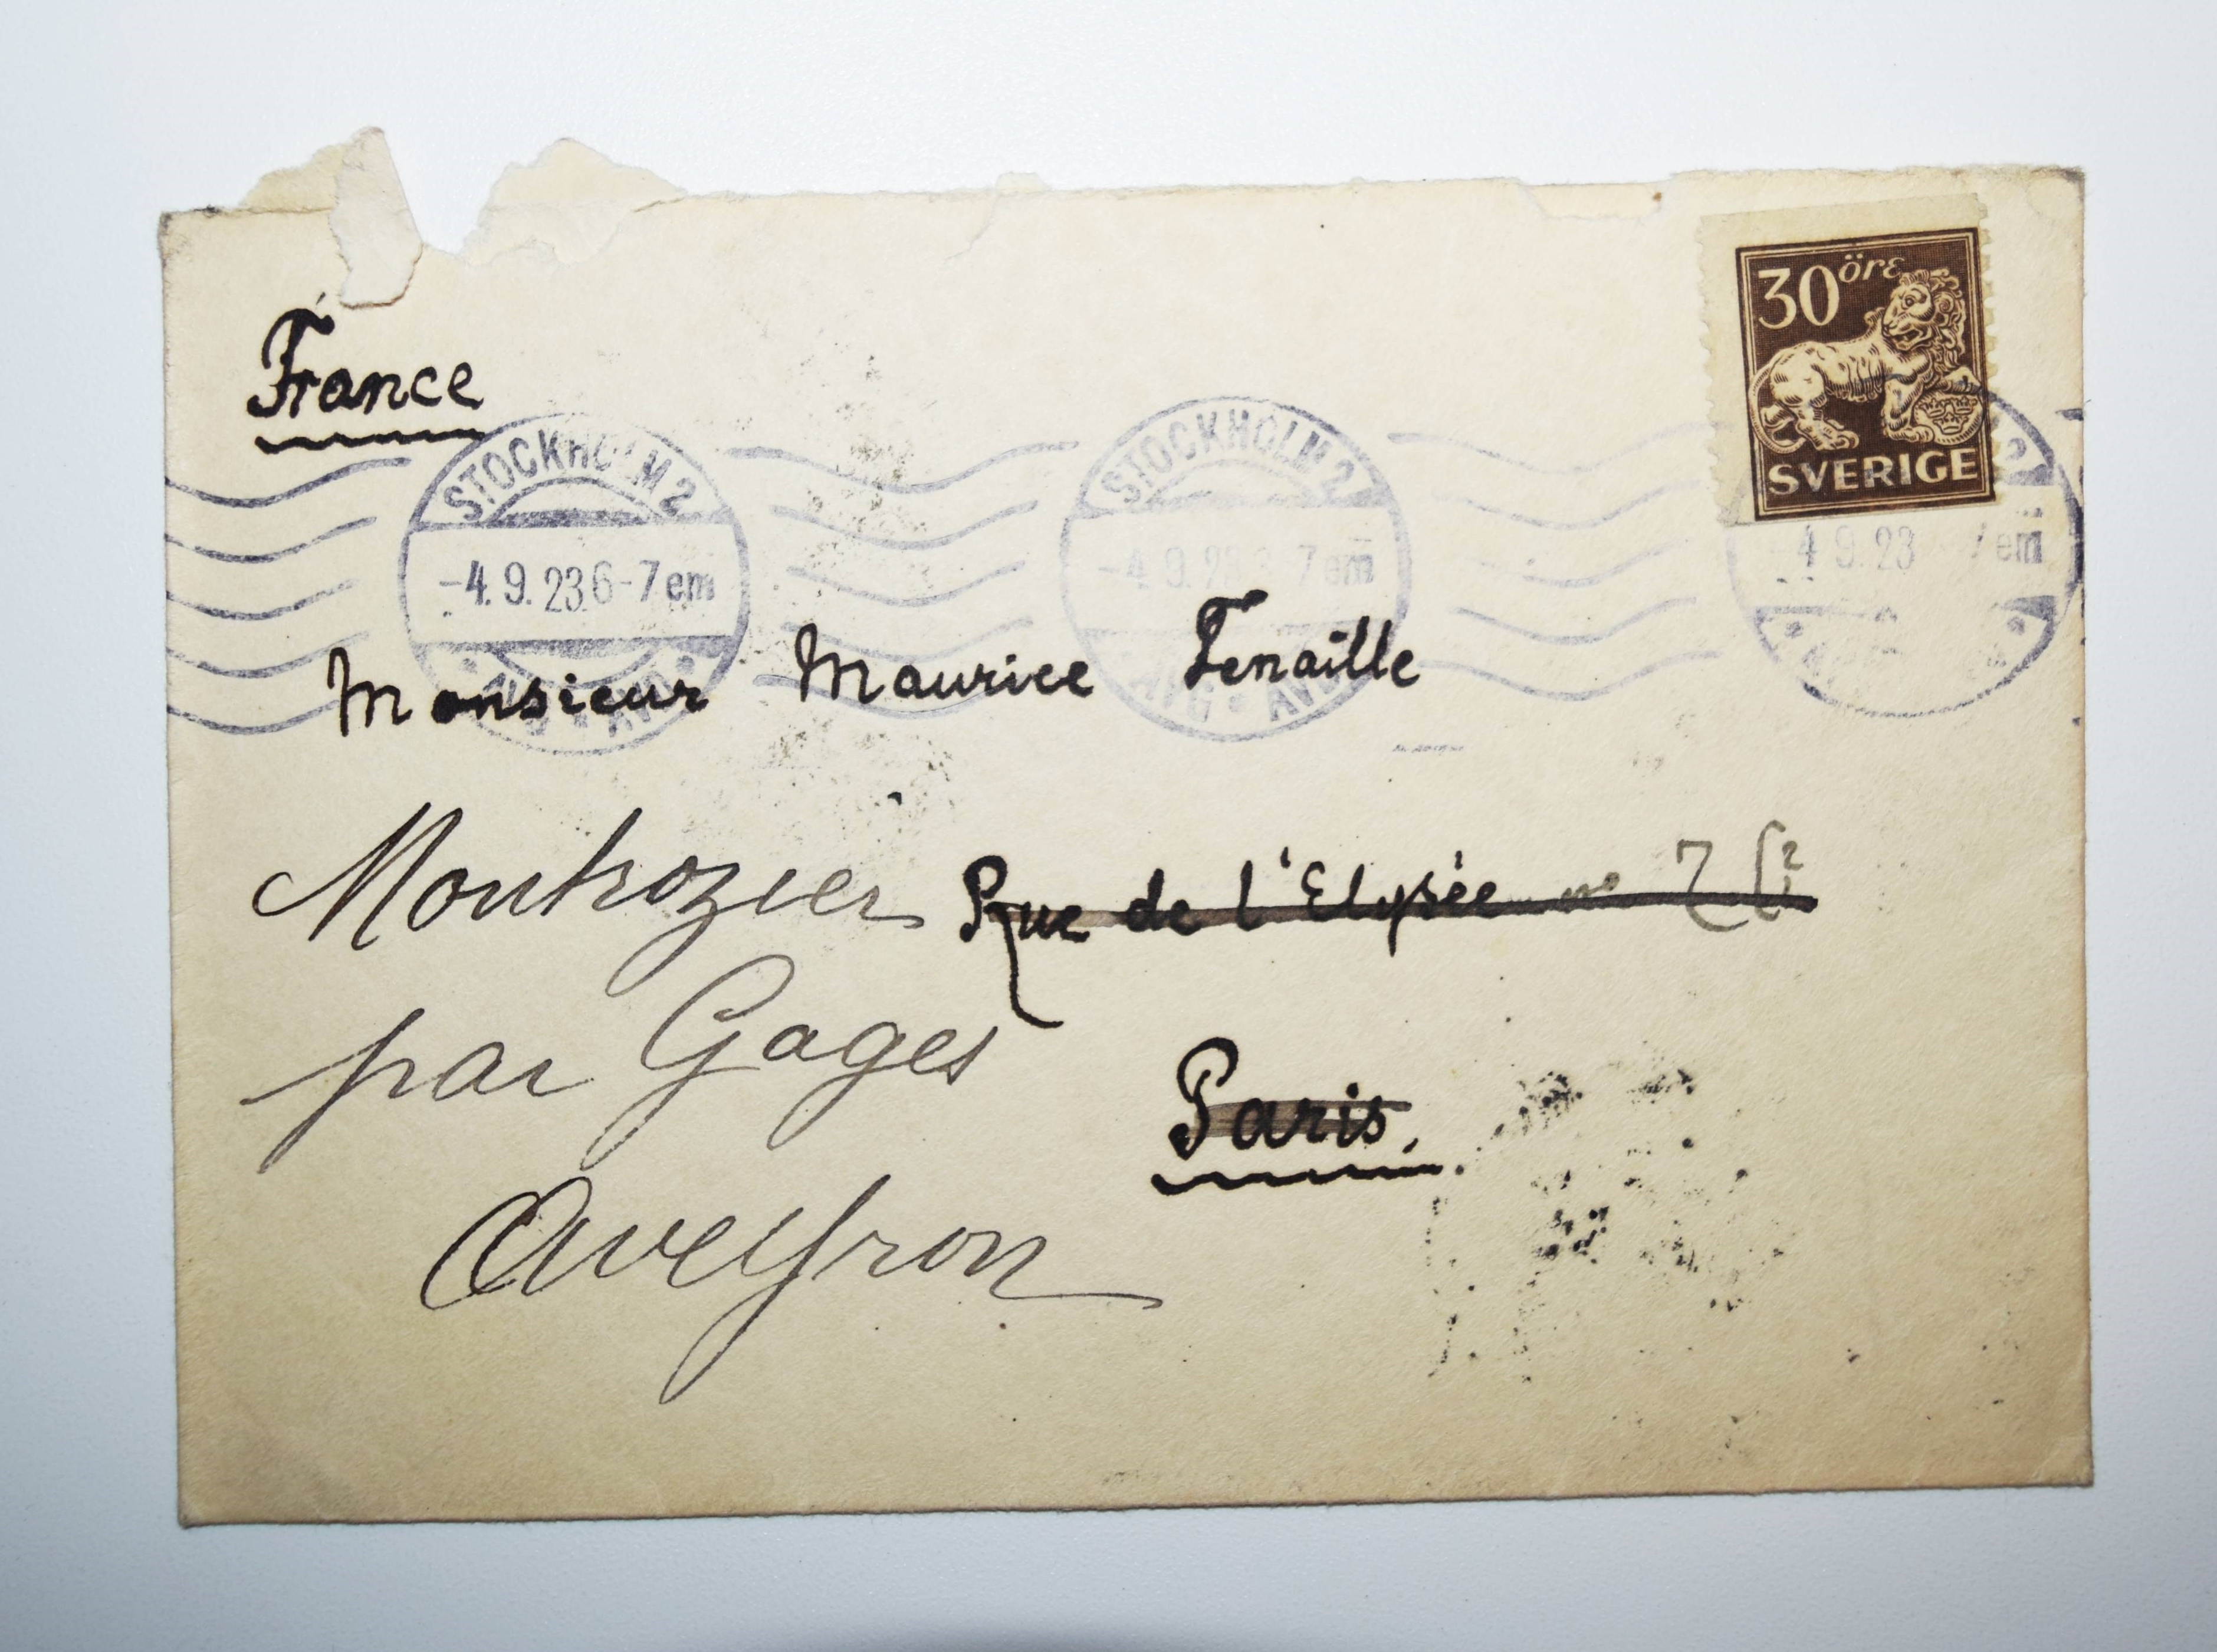 30 öre
SVERIGE
France
STOCKHOLM 2
-4.9.23.6-7em
STOCKHOLM 2
-4.9.23 7em
2
4 9.23 7em
Monsieur Maurice Fenaille
Rue de l'Elysée no 7
Paris.
Montrozier
par Gages
Aveyron